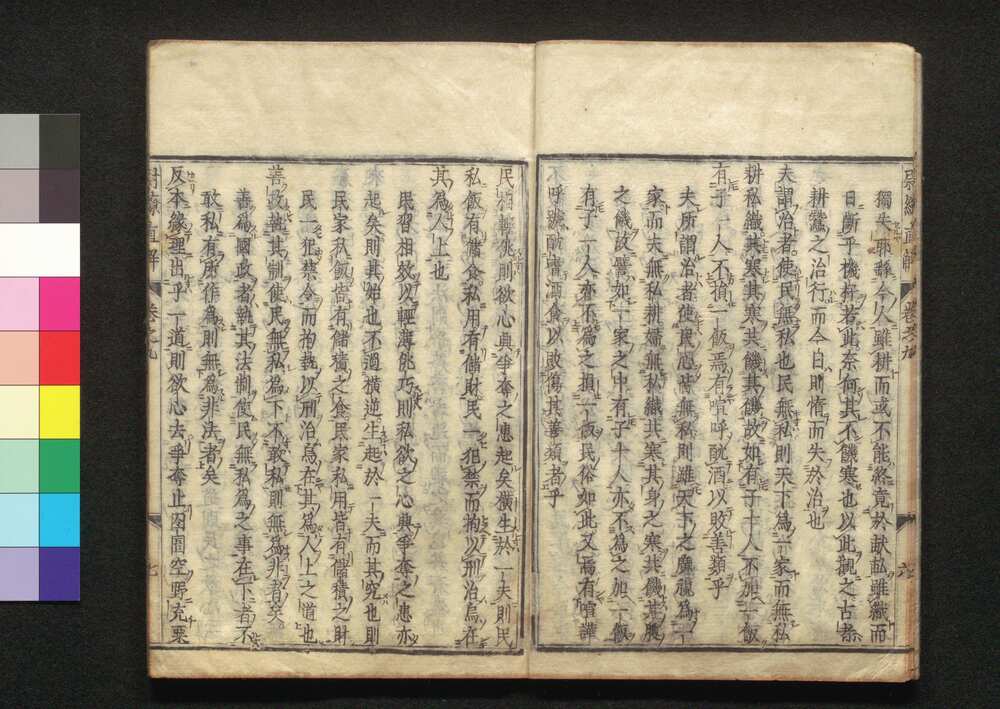 獨失孤靜今人雖耕而或不能終竟於畝畝雖織而
日斷乎機杼若此奈何其不饑寒也以此觀之古者
耕蠶之治行而今日則惰而失於治也
夫謂治者使民無私也民無私則天下為一家而無私
耕私織共寒其寒共饑其饑故如有子十人不加一飯
有子一人不損一飯焉有喧呼酖酒以敗善類乎
夫所謂治者使民心若無私則雖天下之廣視為一
家而夫無私耕婦無私織共寒其身之寒共饑其腹
之饑故譬如一家之中有子十人亦不為之加一飯
有子一人亦不為之損一飯民俗如此又焉有喧譁
呼號酖嗜酒食以敗傷其善類者乎
民相輕佻則欲心興爭奪之患起矣橫生於一夫則民
私飯有儲食私用有儲財民一犯禁而拘以刑治烏在
其為人上也
民習相效以輕薄佻巧則私欲之心興爭奪之患亦
起矣則其始也不過橫逆生起於一夫而其究也則
民家私飯皆有儲積之食民家私用皆有儲積之財
民一犯禁令而拘執以刑治烏在其為人上之道也
善政執其制使民無私為下不敢私則無為非者矣
善為國政者執其法制使民無私為之事在下者不
敢私有所作為則無為非法者矣
反本緣理出乎一道則欲心去爭奪止囹圄空野充粟
尉繚直解 卷之九 七